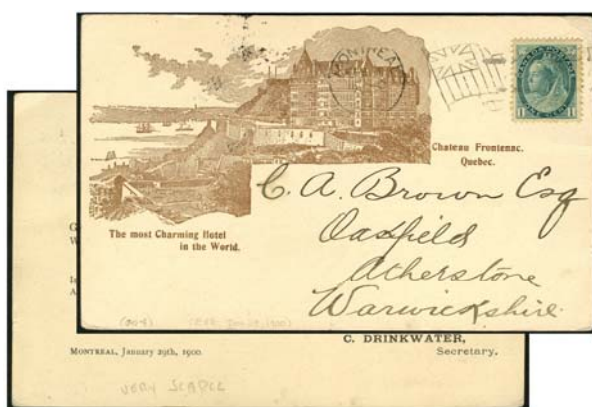 MONTREAL
CANADA POSTAGE
1 ONE CENT 1
Chateau Frontenac,
Quebec.
The most Charming Hotel
in the World.
C. A. Brown Esq
Oakfield
Atherstone
Warwickshire.
G
W
In
A
C. DRINKWATER,
Secretary.
MONTREAL, January 29th, 1900.
VERY SCARCE